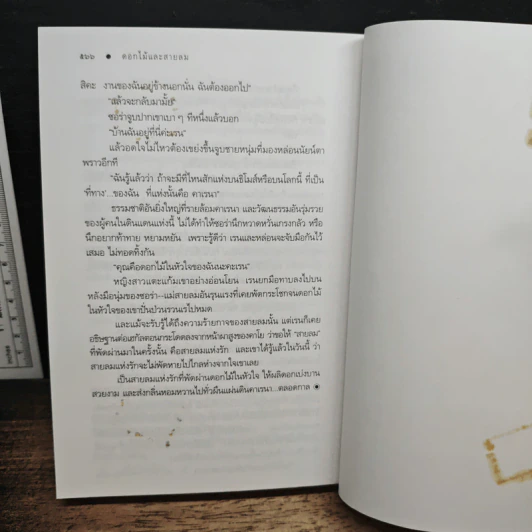 ๕๖๖ ● ดอกไม้และสายลม
สิคะ งานของฉันอยู่ข้างนอกนั่น ฉันต้องออกไป"
"แล้วจะกลับมามั้ย"
ซอร่าจูบปากเขาเบา ๆ ทีหนึ่งแล้วบอก
"บ้านฉันอยู่ที่นี่ค่ะเรน"
แล้วอดใจไม่ไหวต้องเขย่งขึ้นจูบชายหนุ่มที่มองหล่อนนัยน์ตา
พราวอีกที
"ฉันรู้แล้วว่า ถ้าจะมีที่ไหนสักแห่งบนธิโมส์หรือบนโลกนี้ ที่เป็น
'ที่ทาง'...ของฉัน ที่แห่งนั้นคือ คาเรนา"
ธรรมชาติอันยิ่งใหญ่ที่รายล้อมคาเรนา และวัฒนธรรมอันรุ่มรวย
ของผู้คนในดินแดนแห่งนี้ ไม่ได้ทำให้ซอร่านึกหวาดหวั่นเกรงกลัว หรือ
นึกอยากท้าทาย หยามหยัน เพราะรู้ดีว่า เรนและหล่อนจะจับมือกันไว้
เสมอ ไม่ทอดทิ้งกัน
"คุณคือดอกไม้ในหัวใจของฉันนะคะเรน"
หญิงสาวแตะแก้มเขาอย่างอ่อนโยน เรนยกมือทาบลงไปบน
หลังมือนุ่มของซอร่า--แม่สายลมอันรุนแรงที่เคยพัดกระโชกจนดอกไม้
ในหัวใจของเขาปั่นป่วนรวนเรไปหมด
และแม้จะรับรู้ได้ถึงความร้ายกาจของสายลมนั้น แต่เรนก็เคย
อธิษฐานต่อเกลไคลอนกระโดดลงจากหน้าผาสูงของคาโย ว่าขอให้ "สายลม"
ที่พัดผ่านมาในครั้งนั้น คือสายลมแห่งรัก และเขาได้รู้แล้วในวันนี้ ว่า
สายลมแห่งรักจะไม่พัดหายไปไกลห่างจากใจเขาเลย
เป็นสายลมแห่งรักที่พัดผ่านดอกไม้ในหัวใจ ให้ผลิดอกเบ่งบาน
สวยงาม และส่งกลิ่นหอมหวานไปทั่วผืนแผ่นดินคาเรนา...ตลอดกาล